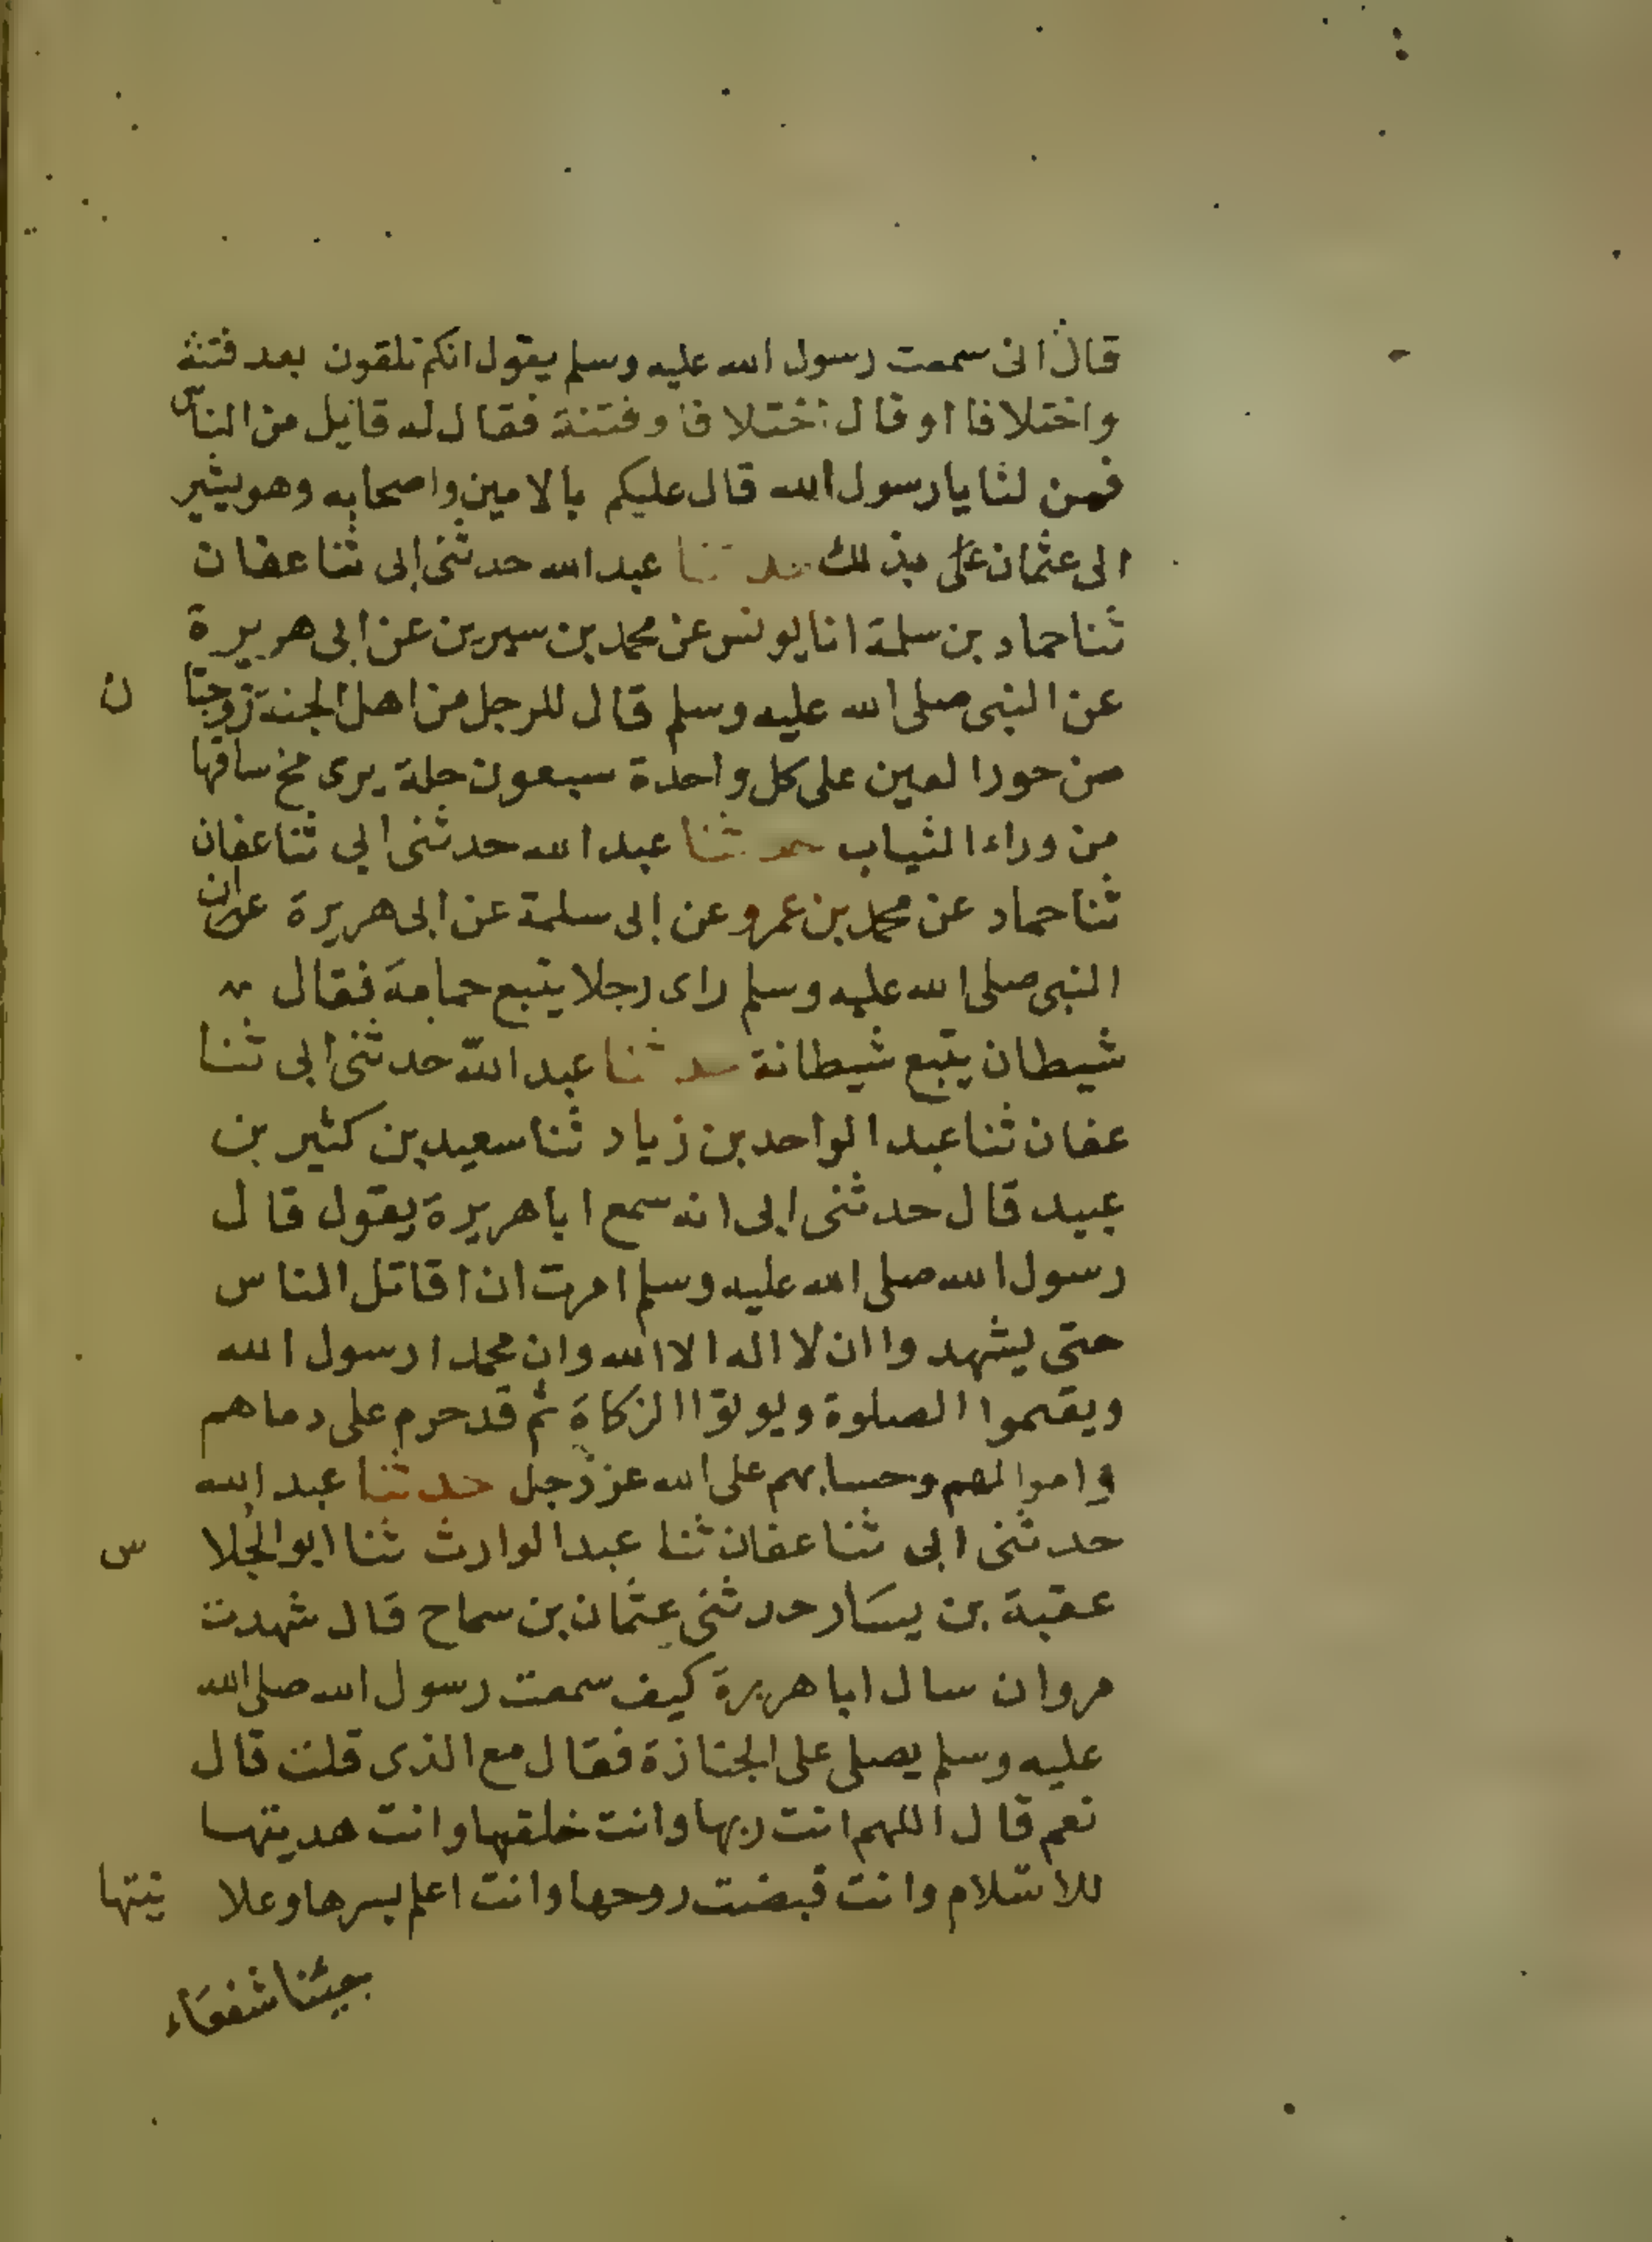 قال انى سمعت رسول الله عليه وسلم يقول انكم تلقون بعد فتنة
واختلافا او قال اختلافا وفتنة فقال له قايل من الناس
فمن لنا يا رسول الله قال عليكم بالامين واصحابه وهو يشير
الى عثمان بذلك حدثنا عبد الله حدثنى ابى ثنا عفان
ثنا حماد بن سلمة انا يونس عن محمد بن سيرين عن ابى هريرة
عن النبى صلى الله عليه وسلم قال للرجل من اهل الجنة زوجتا ن
من حور العين على كل واحدة سبعون حلة يرى مخ ساقها
من وراء الثياب حدثنا عبد الله حدثنى ابي ثنا عفان
ثنا حماد عن محمد بن عمرو عن ابى سلمة عن ابى هريرة ان
النبى صلى الله عليه وسلم راى رجلا يتبع حمامة فقال
شيطان يتبع شيطانة حدثنا عبد الله حدثنى ابى ثنا
عفان ثنا عبد الواحد بن زياد ثنا سعيد بن كثير بن
عبيد قال حدثنى ابى انه سمع ابا هريرة يقول قال
رسول الله صلى الله عليه وسلم امرت ان اقاتل الناس
حتى يشهدوا ان لا اله الا الله وان محمدا رسول الله
ويقيموا الصلوة ويوتوا الزكاة ثم قد حرم على دماهم
واموالهم وحسابهم على الله عز وجل حدثنا عبد الله
حدثنى ابى ثنا عفان ثنا عبد الوارث ثنا ابو الجلا س
عقبة بن يسار حدثنى عثمان بن سماح قال شهدت
مروان سال ابا هريرة كيف سمعت رسول الله صلى الله
عليه وسلم يصلى على الجنازة فقال مع الذى قلت قال
نعم قال اللهم انت ربها وانت خلقتها وانت هديتها
للاسلام وانت قبضت روحها وانت اعلم بسرها وعلا نيتها
جئنا شفعاء